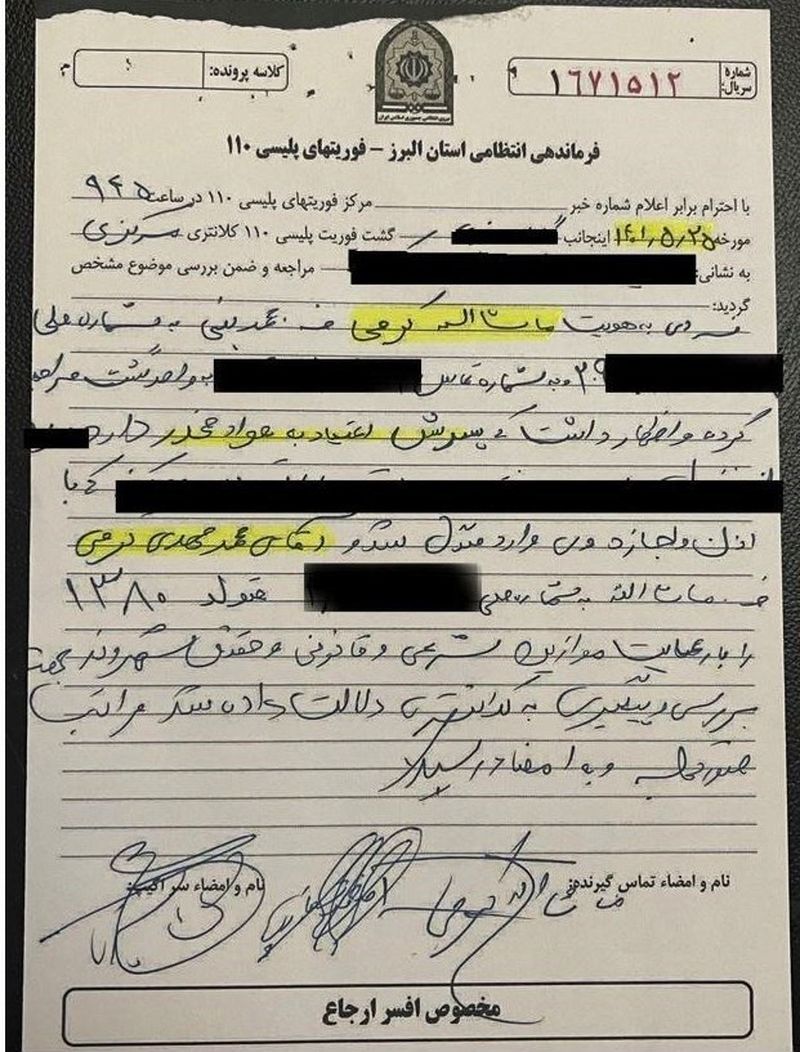 شماره سریال: ۱۶۷۱۵۱۲
کلاسه پرونده:
فرماندهی انتظامی استان البرز – فوریتهای پلیسی ۱۱۰
با احترام برابر اعلام شماره خبر مرکز فوریتهای پلیسی ۱۱۰ در ساعت ۹۴۵
مورخه ۱۴۰۱،۵،۲۵ اینجانب گشت فوریت پلیسی ۱۱۰ کلانتری مرکزی
به نشانی: مراجعه و ضمن بررسی موضوع مشخص
گردید:
فردی به هویت ماشااله کرمی به شماره ملی
۳۰۹ و به شماره تماس به واحد گشت مراجعه
کرده و اظهار داشت که پسرش اعتیاد به مواد مخدر دارد
که با
اذن و اجازه وی وارد منزل شده و آقای محمد مهدی کرمی
ف ماشااله به شماره ملی متولد ۱۳۸۰
را با رعایت موازین شرعی و قانونی و حقوق شهروندی جهت
بررسی و پیگیری به کلانتری دلالت داده شد مراتب
صورتجلسه و به امضا رسید
نام و امضاء تماس گیرنده: ماشااله کرمی
نام و امضاء سر اکیپ:
مخصوص افسر ارجاع